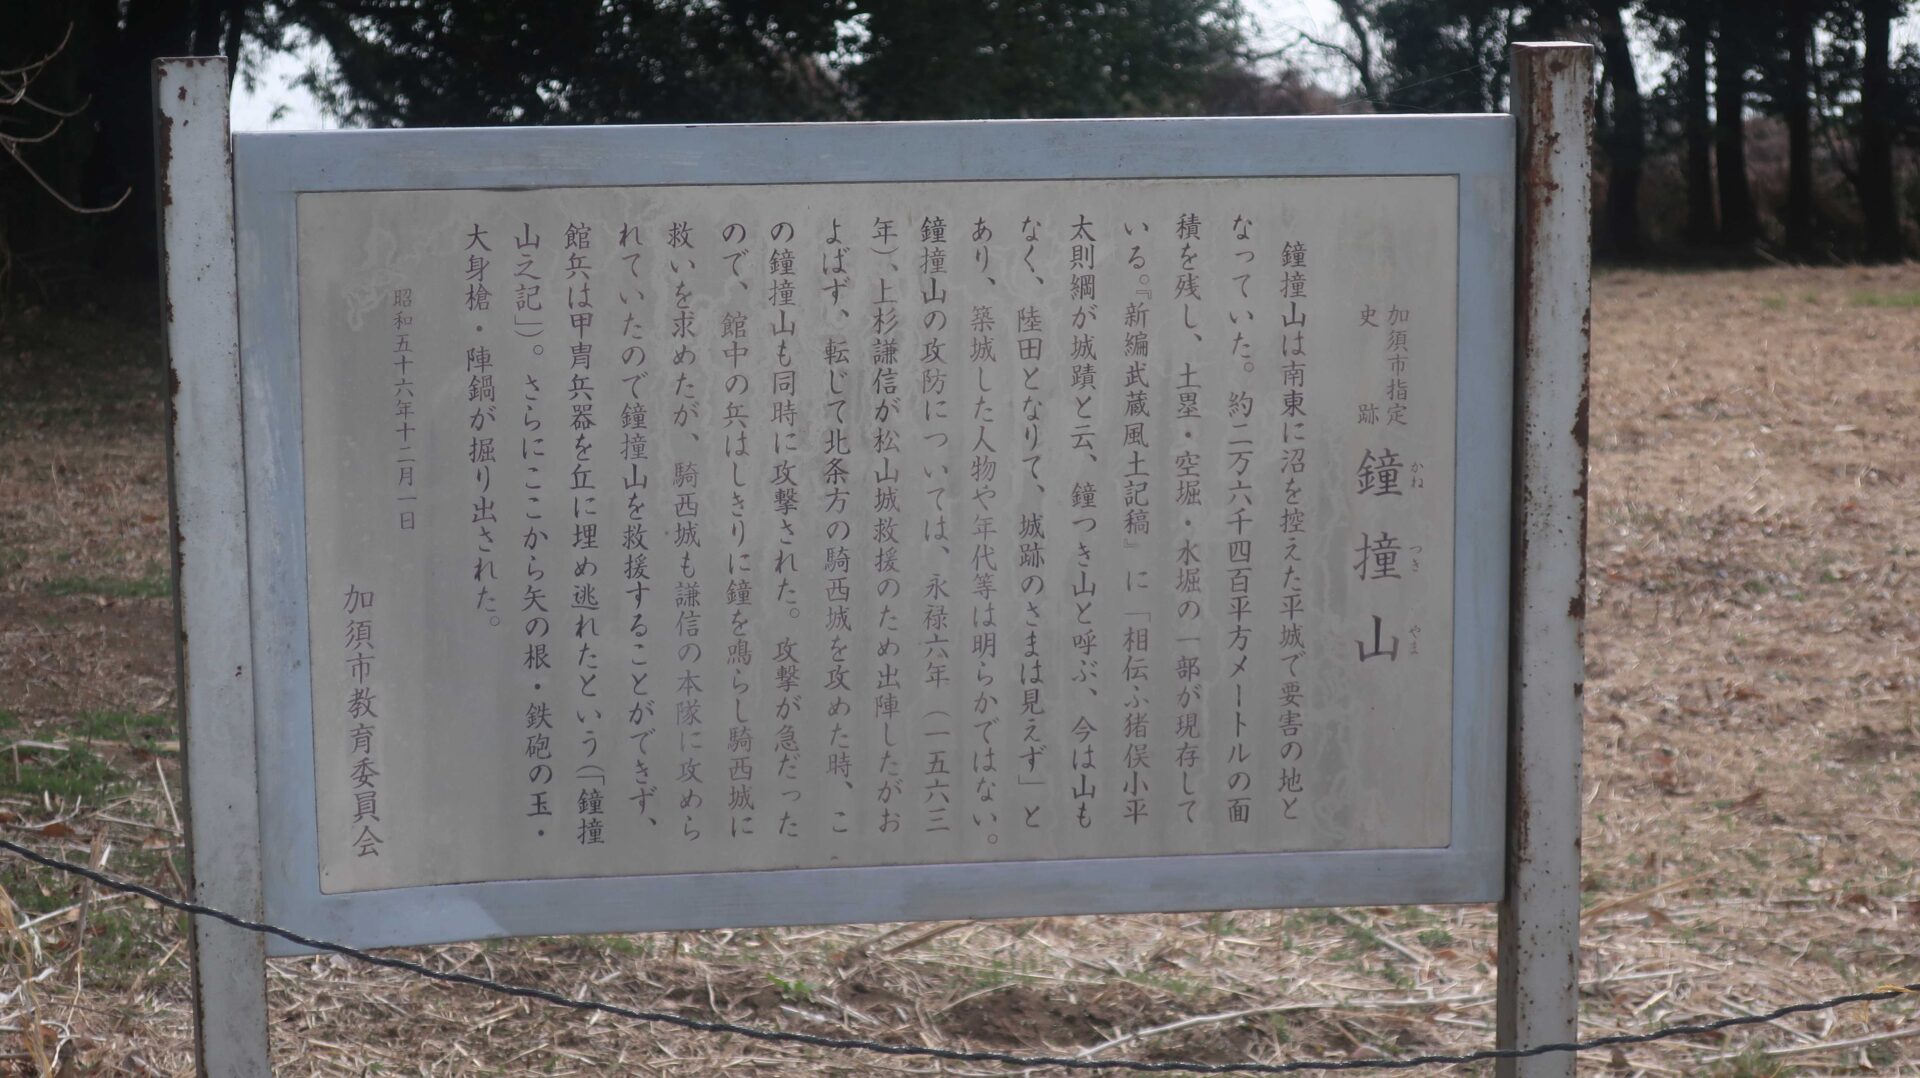 加須市指定
史跡
鐘撞山
かねつきやま
鐘撞山は南東に沼を控えた平城で要害の地と
なっていた。約二万六千四百平方メートルの面
積を残し、土塁・空堀・水堀の一部が現存して
いる。『新編武蔵風土記稿』に「相伝ふ猪俣小平
太則綱が城蹟と云、鐘つき山と呼ぶ、今は山も
なく、陸田となりて、城跡のさまは見えず」と
あり、築城した人物や年代等は明らかではない。
鐘撞山の攻防については、永禄六年(一五六三
年)、上杉謙信が松山城救援のため出陣したがお
よばず、転じて北条方の騎西城を攻めた時、こ
の鐘撞山も同時に攻撃された。攻撃が急だった
ので、館中の兵はしきりに鐘を鳴らし騎西城に
救いを求めたが、騎西城も謙信の本隊に攻めら
れていたので鐘撞山を救援することができず、
館兵は甲冑兵器を丘に埋め逃れたという(「鐘撞
山之記」)。さらにここから矢の根・鉄砲の玉・
大身槍・陣鍋が掘り出された。
昭和五十六年十二月一日
加須市教育委員会